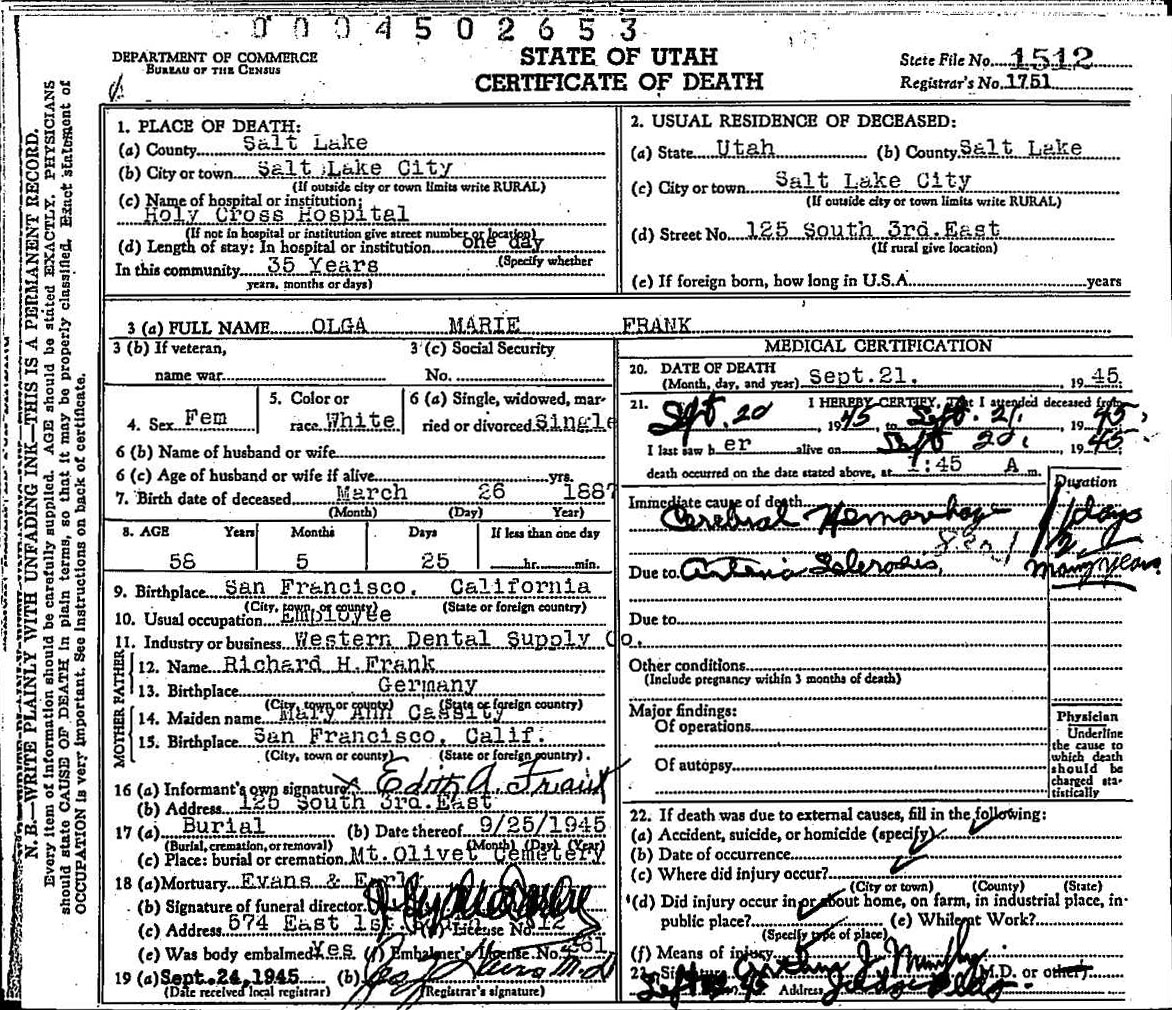 0004502653
DEPARTMENT OF COMMERCE
BUREAU OF THE CENSUS
STATE OF UTAH
CERTIFICATE OF DEATH
State File No. 1512
Registrar's No. 1751
N. B.—WRITE PLAINLY WITH UNFADING INK—THIS IS A PERMANENT RECORD.
Every item of information should be carefully supplied. AGE should be stated EXACTLY. PHYSICIANS
should state CAUSE OF DEATH in plain terms, so that it may be properly classified. Exact statement of
OCCUPATION is very important. See instructions on back of certificate.
1. PLACE OF DEATH:
(a) County Salt Lake
(b) City or town Salt Lake City
(If outside city or town limits write RURAL)
(c) Name of hospital or institution:
Holy Cross Hospital
(If not in hospital or institution give street number or location)
(d) Length of stay: In hospital or institution one day
(Specify whether
In this community 35 Years
years, months or days)
2. USUAL RESIDENCE OF DECEASED:
(a) State Utah (b) County Salt Lake
(c) City or town Salt Lake City
(If outside city or town limits write RURAL)
(d) Street No. 125 South 3rd.East
(If rural give location)
(e) If foreign born, how long in U.S.A. years
3 (a) FULL NAME OLGA MARIE FRANK
3 (b) If veteran,
name war
3 (c) Social Security
No.
4. Sex Fem
5. Color or
race White
6 (a) Single, widowed, mar-
ried or divorced Single
6 (b) Name of husband or wife
6 (c) Age of husband or wife if alive yrs.
7. Birth date of deceased March 26 1887
(Month) (Day) Year)
8. AGE Years Months Days If less than one day
58 5 25 hr. min.
9. Birthplace San Francisco, California
(City, town or county) (State or foreign country)
10. Usual occupation Employee
11. Industry or business Western Dental Supply Co.
FATHER
12. Name Richard H.Frank
13. Birthplace Germany
(City, town or county) (State or foreign country)
MOTHER
14. Maiden name Mary Ann Cassity
15. Birthplace San Francisco, Calif.
(City, town or county) (State or foreign country)
16 (a) Informant's own signature x Edith A. Frank
(b) Address 125 South 3rd.East
17 (a) Burial (b) Date thereof 9/25/1945
(Burial, cremation, or removal) (Month) (Day) (Year)
(c) Place: burial or cremation Mt.Olivet Cemetery
18 (a) Mortuary Evans & Early
(b) Signature of funeral director
(c) Address 574 East 1st License No. 12
(e) Was body embalmed Yes (f) Embalmer's License No.
19 (a) Sept.24,1945 (b) M.D.
(Date received local registrar) (Registrar's signature)
MEDICAL CERTIFICATION
20. DATE OF DEATH
(Month, day, and year) Sept.21. 1945
21. I HEREBY CERTIFY, That I attended deceased from
Sept. 20 1945, to Sept. 21, 1945,
I last saw her alive on Sept 20, 1945
death occurred on the date stated above, at 1:45 A m.
Duration
Immediate cause of death
Cerebral Hemorrhage days
Due to Arterio Sclerosis, many years
Due to
Other conditions
(Include pregnancy within 3 months of death)
Major findings:
Of operations
Of autopsy
Physician
Underline
the cause to
which death
should be
charged sta-
tistically
22. If death was due to external causes, fill in the following:
(a) Accident, suicide, or homicide (specify)
(b) Date of occurrence
(c) Where did injury occur?
(City or town) (County) (State)
(d) Did injury occur in or about home, on farm, in industrial place, in-
public place? (e) While at Work?
(Specify type of place)
(f) Means of injury
23. Signature Arthur J. Murphy M.D. or other
Address Judge Bldg.